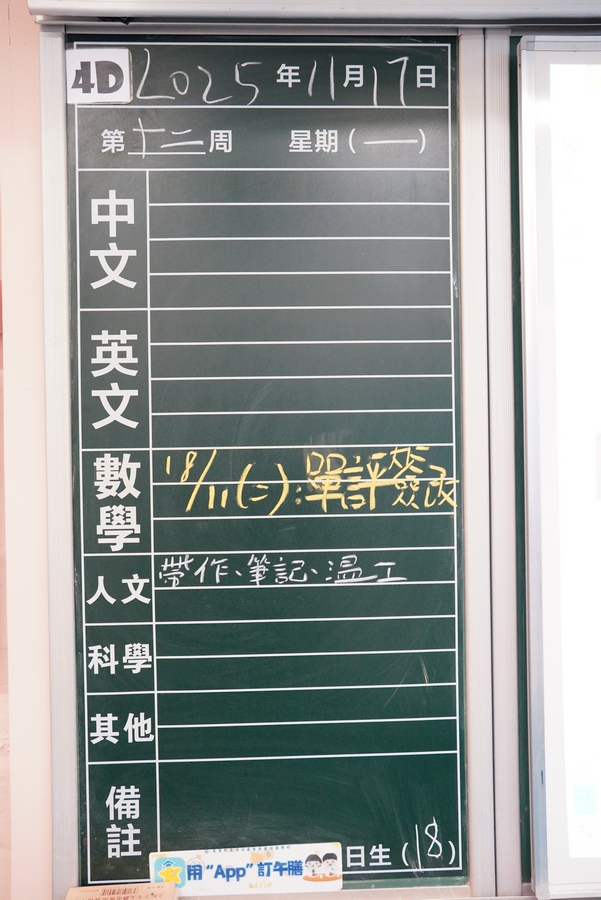 4D 2025年11月17日
第十二周 星期(一)
中文
英文
數學 18/11(二):單評簽改
人文 帶作、筆記、温工
科學
其他
備註
用“App”訂午膳 日生(18)